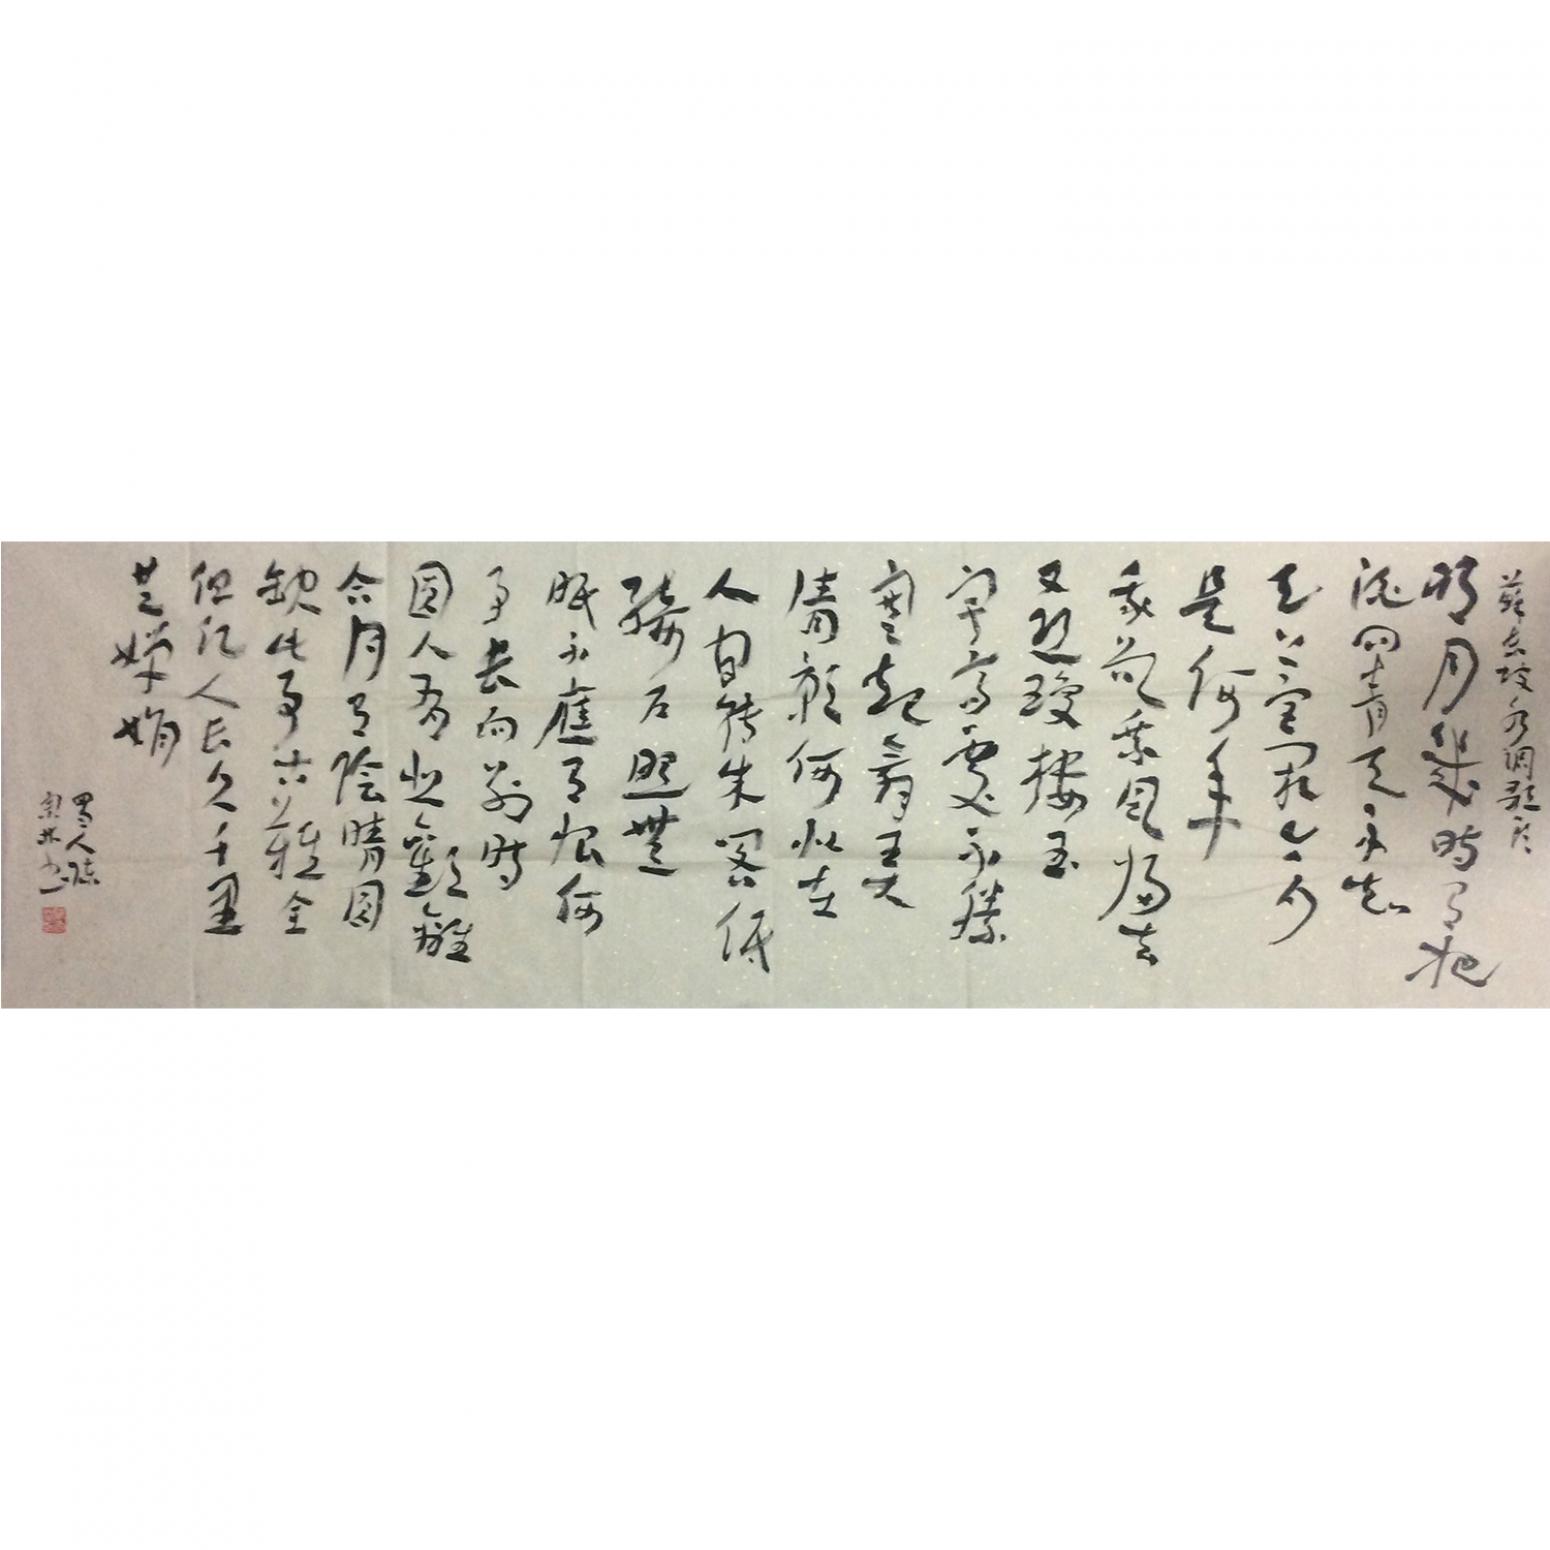 蘇東坡水調歌頭
明月幾時有把
酒問青天不知
天上宮闕今夕
是何年
我欲乘風歸去
又恐瓊樓玉
宇高處不勝
寒起舞弄
清影何似在
人間轉朱閣低
綺户照無
眠不應有恨何
事長向別時
圓人有悲歡離
合月有陰晴圓
缺此事古難全
但願人長久千里
共嬋娟
蜀人陳